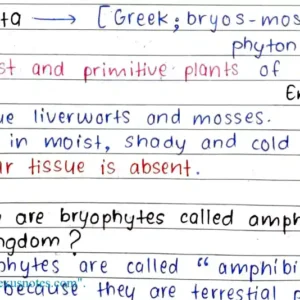 ta → [Greek; bryos-mos
phyton
st and primitive plants of
Em
ue liverworts and mosses.
in moist, shady and cold
ar tissue is absent.
are bryophytes called amph
ngdom ?
phytes are called " amphibi
because they are terrestial